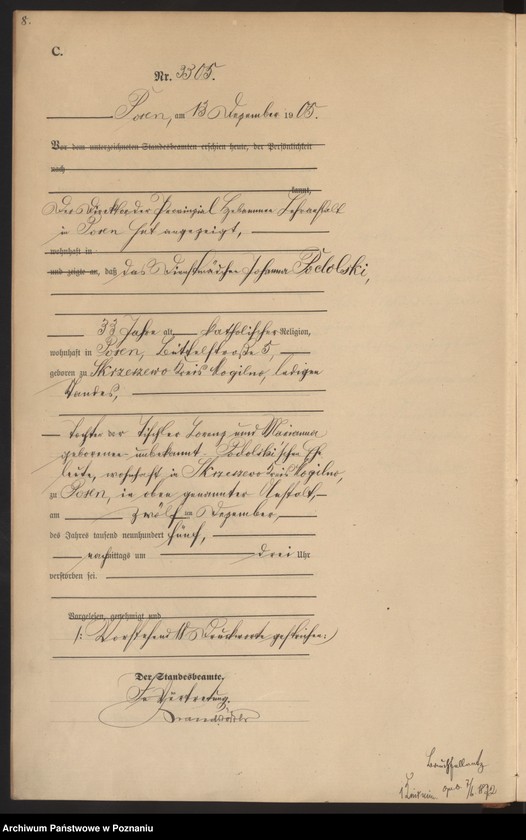 8.
C.
Nr. 3305.
Posen, am 13 Dezember 1905.
Vor dem unterzeichneten Standesbeamten erschien heute, der Persönlichkeit
nach
kannt,
Der Direktor der Provinzial Hebammen Lehranstalt
in Posen hat angezeigt,
wohnhaft in
und zeigte an, daß das Dienstmädchen Johanna Podolski,
33 Jahre alt, katholischer Religion,
wohnhaft in Posen, Büttelstraße 5,
geboren zu Skrzeszewo Kreis Mogilno, ledigen
Standes,
Tochter der Tischler Lorenz und Marianna
geborenen unbekannt Podolski'schen Ehe
leute, wohnhaft in Skrzeszewo Kreis Mogilno,
zu Posen, in oben genannter Anstalt,
am zwölften Dezember,
des Jahres tausend neunhundert fünf,
nachmittags um drei Uhr
verstorben sei.
Vorgelesen, genehmigt und
/: Vorstehend 11 Druckworte gestrichen :/
Der Standesbeamte,
In Vertretung.
1872
Archiwum Państwowe w Poznaniu